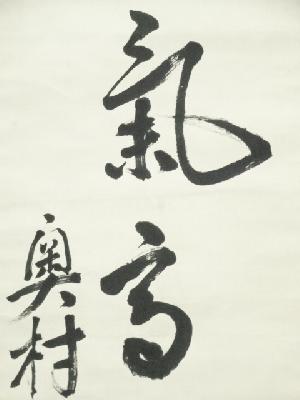 氣高
奥村